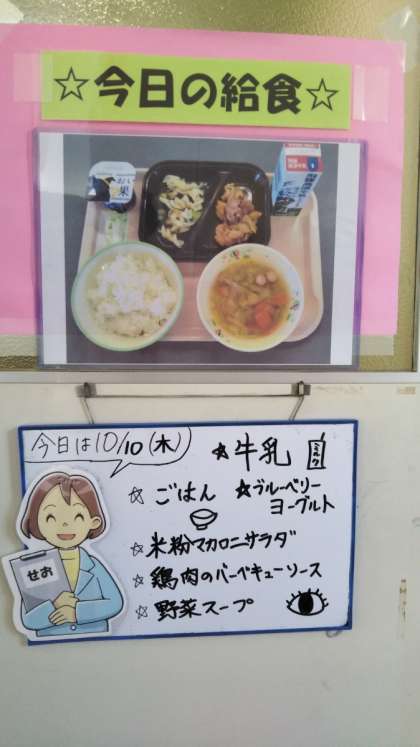 ☆今日の給食☆
果
今日は10/10(木)
☆牛乳
ミルク
☆ごはん ☆ブルーベリー
ヨーグルト
☆米粉マカロニサラダ
☆鶏肉のバーベキューソース
☆野菜スープ
せお